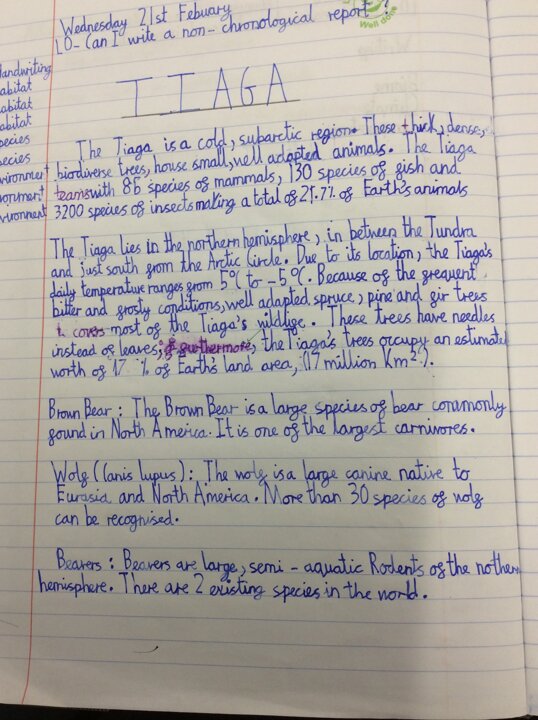 Wednesday 21st Febuary
LO- Can I write a non-chronological report?
Well done
TIAGA
Handwriting
abitat
abitat
abitat
pecies
pecies
vironment
vironment
vironment
The Tiaga is a cold, subarctic region. These thick, dense,
biodiverse trees, house small, well adapted animals. The Tiaga
teams with 86 species of mammals, 130 species of fish and
3200 species of insects making a total of 21.7% of Earth's animals
The Tiaga lies in the northern hemisphere, in between the Tundra
and just south from the Arctic Circle. Due to its location, the Tiaga's
daily temperature ranges from 5°C to -5°C. Because of the frequent
bitter and frosty conditions, well adapted spruce, pine and fir trees
covers most of the Tiaga's wildlife. These trees have needles
instead of leaves; furthermore, the Tiaga's trees occupy an estimated
worth of 17 % of Earth's land area, (17 million Km²).
Brown Bear: The Brown Bear is a large species of bear commonly
found in North America. It is one of the largest carnivores.
Wolf (Canis lupus): The wolf is a large canine native to
Eurasia and North America. More than 30 species of wolf
can be recognised.
Beavers: Beavers are large, semi-aquatic Rodents of the nothern
hemisphere. There are 2 existing species in the world.